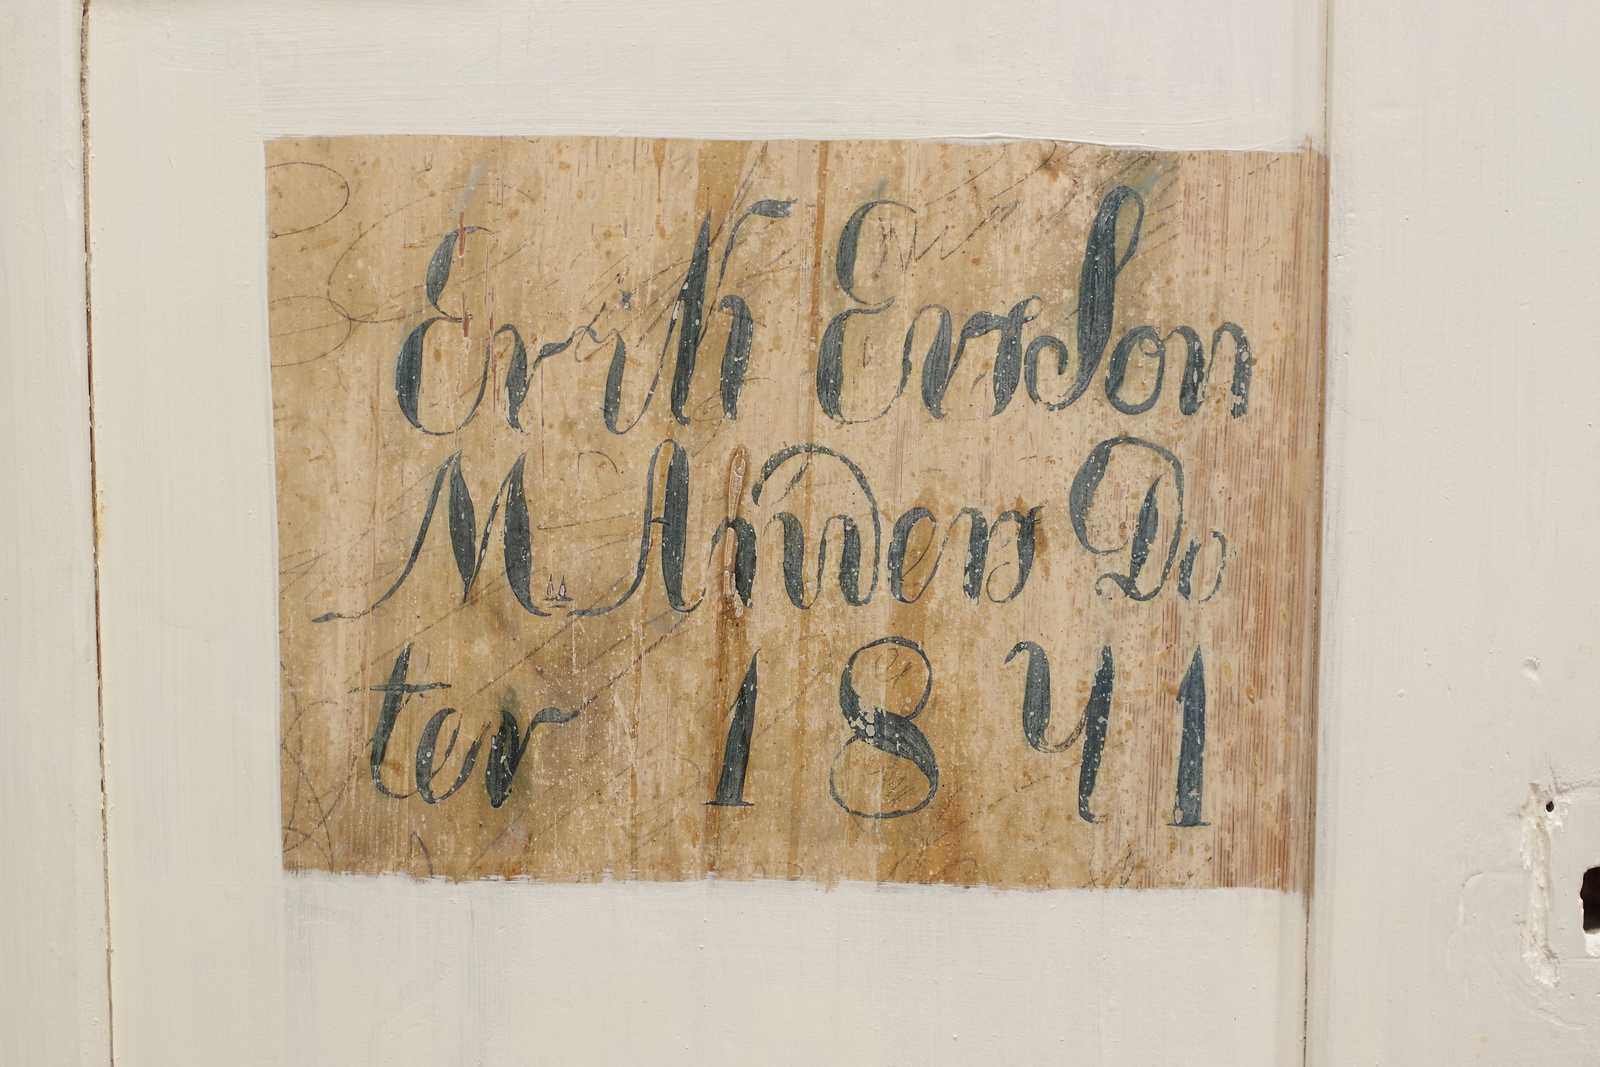 Erik Ersson
M Anders Do
ter 1841